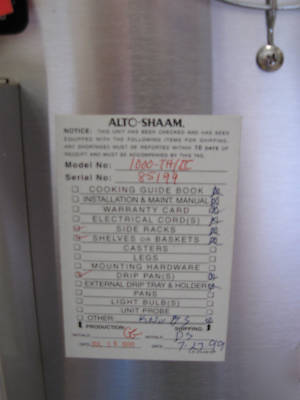 ALTO-SHAAM
NOTICE: THIS UNIT HAS BEEN CHECKED AND HAS BEEN
EQUIPPED WITH THE FOLLOWING ITEMS FOR SHIPPING.
ANY SHORTAGES MUST BE REPORTED WITHIN 10 DAYS OF
RECEIPT AND MUST BE ACCOMPANIED BY THIS TAG.
Model No: 1000-TH/II
Serial No: 85199
COOKING GUIDE BOOK
INSTALLATION & MAINT. MANUAL
WARRANTY CARD
ELECTRICAL CORD(S)
SIDE RACKS
SHELVES OR BASKETS
CASTERS
LEGS
MOUNTING HARDWARE
DRIP PAN(S)
EXTERNAL DRIP TRAY & HOLDER
PANS
LIGHT BULB(S)
UNIT PROBE
OTHER:
PRODUCTION: SHIPPING:
INITIALS: INITIALS: DS
DATE: DATE: 7-27-99